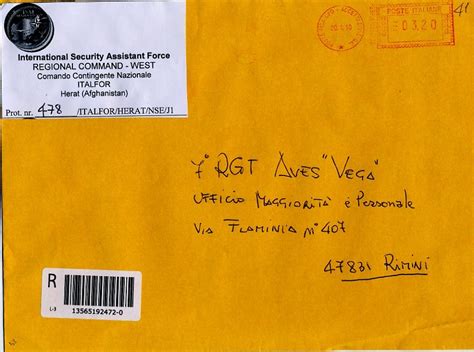 ISAF
International Security Assistant Force
REGIONAL COMMAND - WEST
Comando Contingente Nazionale
ITALFOR
Herat (Afghanistan)
Prot. nr. 478 /ITALFOR/HERAT/NSE/J1
POSTE ITALIANE
0320
41
7° RGT AVES "VEGA"
UFFICIO MAGGIORITÀ e Personale
VIA FLAMINIA n° 407
47831 RIMINI
R
L-3
13565192472-0